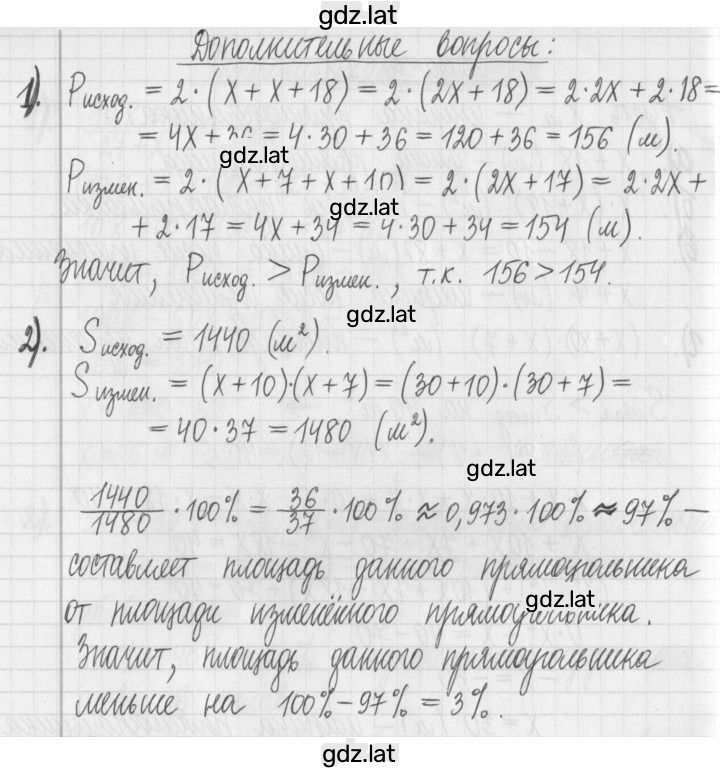 gdz.lat
Дополнительные вопросы:
1). Pисход. = 2·(x+x+18) = 2·(2x+18) = 2·2x+2·18=
= 4x+36 = 4·30+36 = 120+36 = 156 (м).
gdz.lat
Pизмен. = 2·(x+7+x+10) = 2·(2x+17) = 2·2x+
gdz.lat
+ 2·17 = 4x+34 = 4·30+34 = 154 (м).
Значит, Pисход. > Pизмен., т.к. 156>154.
gdz.lat
2). Sисход. = 1440 (м²).
Sизмен. = (x+10)·(x+7) = (30+10)·(30+7) =
= 40·37 = 1480 (м²).
gdz.lat
1440/1480 · 100% = 36/37 · 100% ≈ 0,973·100% ≈ 97% —
составляет площадь данного прямоугольника
gdz.lat
от площади изменённого прямоугольника.
Значит, площадь данного прямоугольника
меньше на 100%-97% = 3%.
gdz.lat